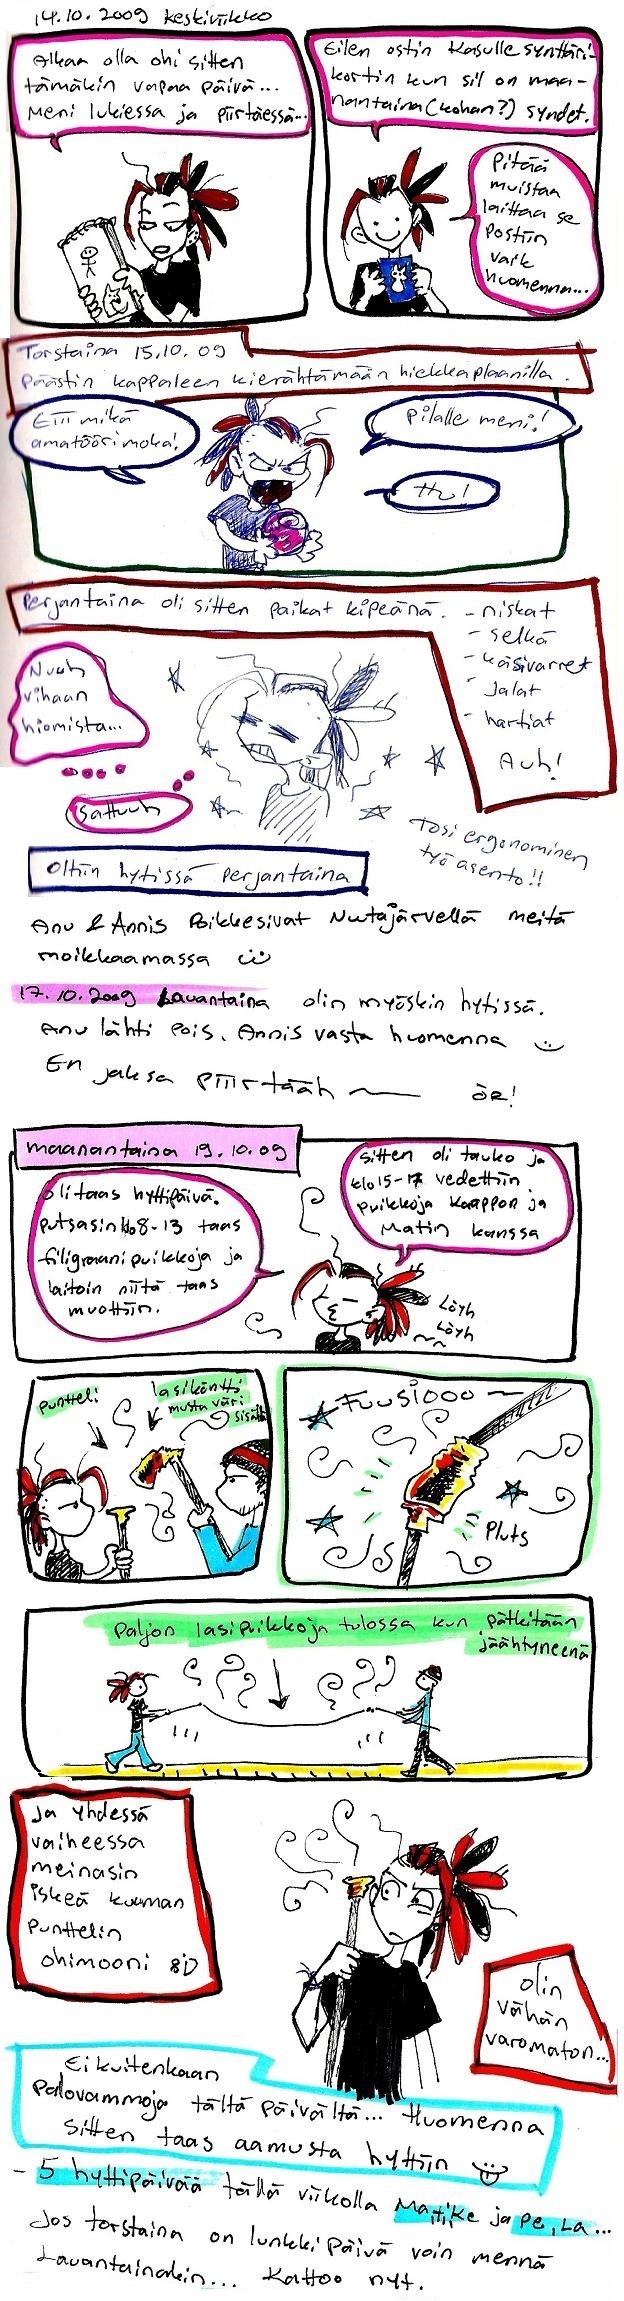 14.10.2009 keskiviikko
Alkaa olla ohi sitten
tämäkin vapaa päivä...
Meni lukiessa ja piirtäessä...
Eilen ostin Kasulle synttäri-
kortin kun sil on maa-
nantaina (kohan?) syndet.
Pitää
muistaa
laittaa se
Postiin
vaik
huomenna...
Torstaina 15.10.09
Päästin kappaleen kierähtämään hiekkaplaanilla.
Eiii mikä
amatööri moka!
Pilalle meni!
Hu!
Perjantaina oli sitten paikat kipeänä.
- niskat
- selkä
- käsivarret
- Jalat
- hartiat
Auh!
Nuuh
vihaan
hiomista...
Sattuuh
Tosi ergonominen
työasento!!
Oltiin hytissä perjantaina
Anu & Annis Poikkesivat Nuutajärvellä meitä
moikkaamassa
17.10.2009 Lauantaina olin myöskin hytissä.
Anu lähti pois. Annis vasta huomenna
En jaksa piirtääh
ör!
maanantaina 19.10.09
oli taas hyttipäivä.
Putsasin klo 8-13 taas
filigraani puikkoja ja
laitoin niitä taas
muottiin.
Sitten oli tauko ja
klo 15-17 vedettiin
puikkoja Kaappon ja
Matin kanssa
Löyh
Löyh
puntteli
lasikönttö
musta väri
sisällä
Fuusiooo
Pluts
paljon lasipuikkoja tulossa kun pätkitään
jäähtyneenä
Ja yhdessä
vaiheessa
meinasin
iskeä kuuman
punttelin
ohimooni 8D
olin
vähän
varomaton...
Ei kuitenkaan
palovammoja tältä päivältä... Huomenna
sitten taas aamusta hyttiin
- 5 hyttipäivää tällä viikolla Ma, Ti, Ke ja pe, La...
Jos torstaina on lunkki päivä voin mennä
Lauantainakin... Kattoo nyt.